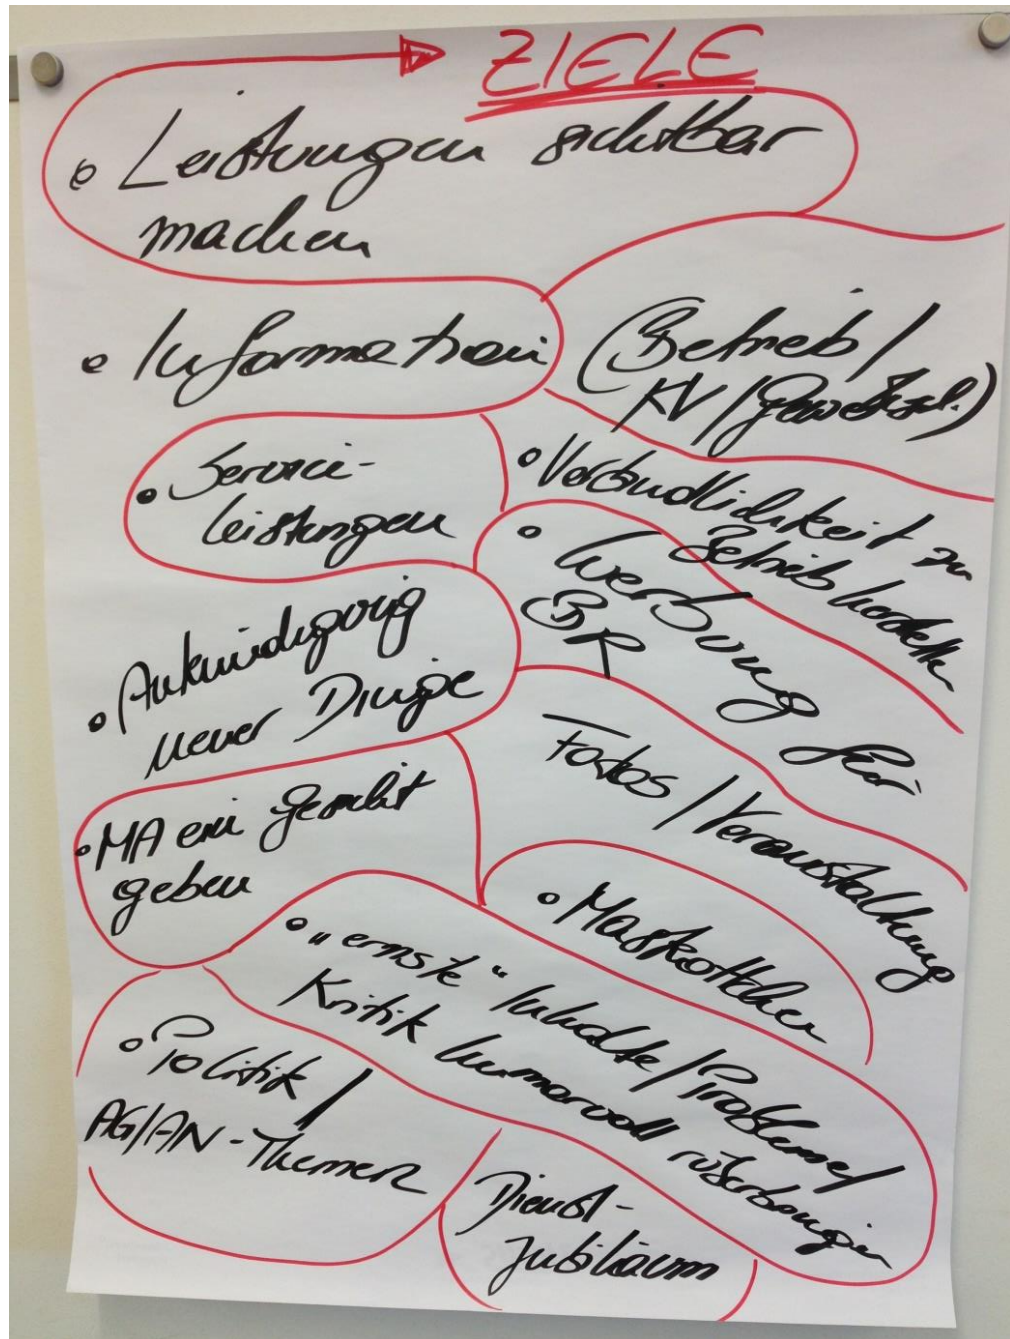 ZIELE
• Leistungen sichtbar
machen
• Information
(Betrieb /
KV / Gewerksch.)
• Service-
leistungen
• Verbindlichkeit zu
Betrieb herstellen
• Werbung für
BR
• Ankündigung
neuer Dinge
Fotos / Veranstaltung
• MA ein Gesicht
geben
• Maskottchen
• "ernste" Inhalte / Probleme /
Kritik humorvoll rüberbringen
• Politik /
AG/AN-Themen
Dienst-
jubiläum